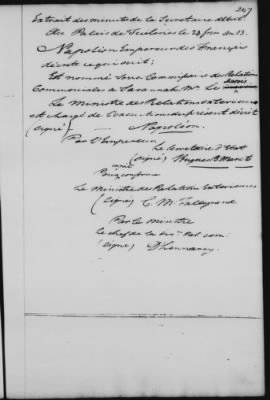 247
Extrait des minutes de la Secretaire d'Etat
Au Palais de Tuileries le 23 an 13.
Napoléon Empereur des Français
décrète ce qui suit:
Est nommé Sous Commissaire des Relations
Commerciales à Savannah Mr. Le
Le Ministre des Relations Exterieures
est chargé de l'execution du présent décrit
(signé) — Napoléon.
Par l'Empereur
Le Secretaire d'Etat
(signé) Hugues B. Maret
Pour copie conforme
Le Ministre des Relations Exterieures
(signé) C. M. Talleyrand
Par le ministre
Le chef de la Rel. com.
(signé)